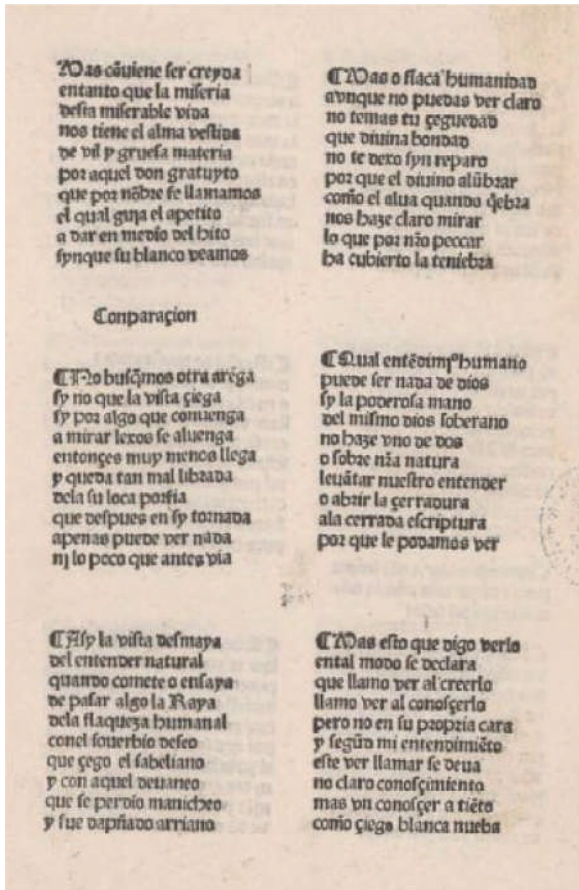 Mas cõuiene ser creyda
entanto que la miseria
desta miserable vida
nos tiene el alma vestida
de vil y gruesa materia
por aquel don gratuyto
que por nõbre fe llamamos
el qual guja el apetito
a dar en medio del hito
synque su blanco veamos
Conparaçion
¶No busq̃mos otra arẽga
sy no que la vista çiega
sy por algo que conuenga
a mirar lexos se aluenga
entonçes muy menos llega
y queda tan mal librada
dela su loca porfia
que despues en sy tornada
apenas puede ver nada
nj lo poco que antes via
¶Asy la vista desmaya
del entender natural
quando comete o ensaya
de pasar algo la Raya
dela flaqueza humanal
conel souerbio deseo
que çego el sabeliano
y con aquel deuaneo
que se perdio manicheo
y fue dapñado arriano
¶Mas o flaca humanidad
avnque no puedas ver claro
no temas tu çeguedad
que diuina bondad
no te dexo syn reparo
por que el diuino alũbrar
com̃o el alua quando q̃ebra
nos haze claro mirar
lo que por nr̃o peccar
ha cubierto la teniebra
¶Qual entẽdimjº humano
puede ser nada de dios
sy la poderosa mano
del mismo dios soberano
no haze vno de dos
o sobre nr̃a natura
leuãtar nuestro entender
o abrir la çerradura
ala cerrada escriptura
por que le podamos ver
¶Mas esto que digo verlo
ental modo se declara
que llamo ver al creerlo
llamo ver al conosçerlo
pero no en su propria cara
y segũd mi entendimiẽto
este ver llamar se deua
no claro conosçimiento
mas vn conosçer a tiẽto
com̃o çiego blanca nueba